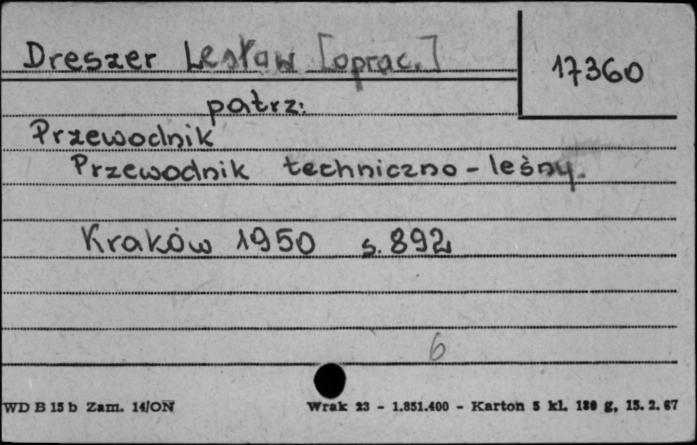 Dreszer Lesław [oprac.]
17360
patrz:
Przewodnik
Przewodnik techniczno-leśny.
Kraków 1950 s. 892
6
WD B 15 b Zam. 14/ON
Wrak 23 - 1.851.400 - Karton 5 kl. 180 g, 15. 2. 67